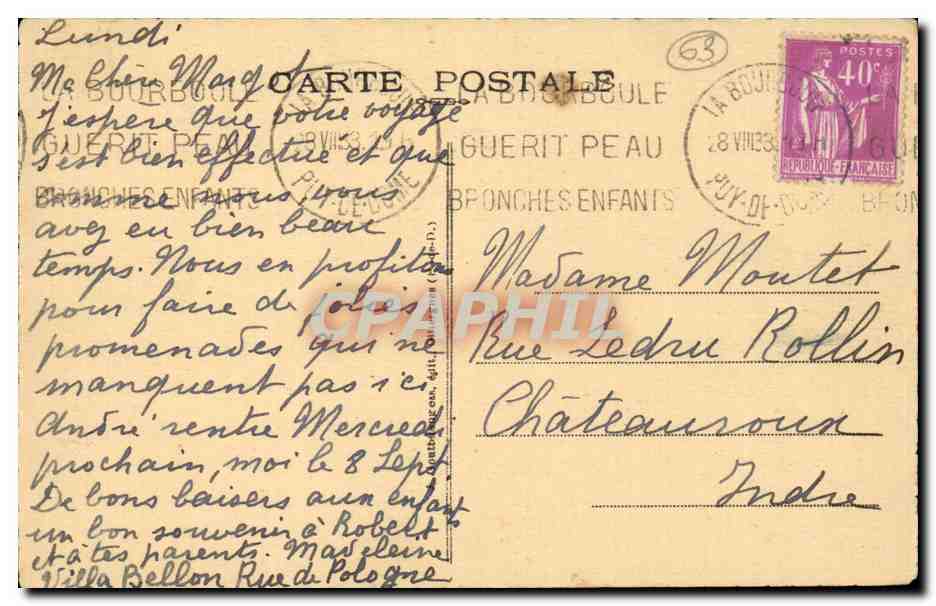 Lundi
Ma Chère Margot
CARTE POSTALE
J'espère que votre voyage
s'est bien effectué et que
comme nous, vous
avez eu bien beau
temps. Nous en profitons
pour faire de jolies
promenades qui ne
manquent pas ici
André rentre Mercredi
prochain, moi le 8 Sept
De bons baisers aux enfants
un bon souvenir à Robert
et à tes parents. Madeleine
Villa Bellon Rue de Pologne
LA BOURBOULE
GUERIT PEAU
BRONCHES ENFANTS
LA BOURBOULE
PUY-DE-DOME
LA BOURBOULE
GUERIT PEAU
BRONCHES ENFANTS
LA BOURBOULE
28 VIII 38
PUY-DE-DOME
GUE
BRON
63
POSTES
40c
REPUBLIQUE-FRANÇAISE
Madame Moutet
Rue Ledru Rollin
Châteauroux
Indre
CPAPHIL